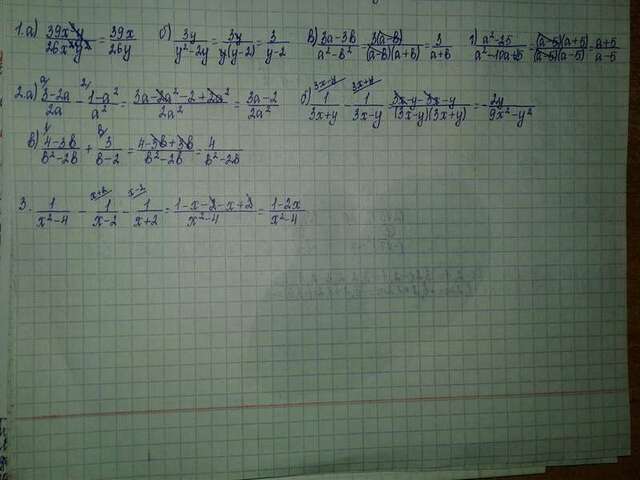 1. а) 39x³y / 26x²y² = 39x / 26y   б) 3y / y²-2y = 3y / y(y-2) = 3 / y-2   в) 3a-3b / a²-b² = 3(a-b) / (a-b)(a+b) = 3 / a+b   г) a²-25 / a²-10a+25 = (a-5)(a+5) / (a-5)(a-5) = a+5 / a-5
2. а) 3-2a / 2a - 1-a² / a² = 3a-2a²-2+2a² / 2a² = 3a-2 / 2a²   б) 1 / 3x+y - 1 / 3x-y = 3x-y-3x-y / (3x-y)(3x+y) = -2y / 9x²-y²
в) 4-3b / b²-2b + 3 / b-2 = 4-3b+3b / b²-2b = 4 / b²-2b
3. 1 / x²-4 - 1 / x-2 - 1 / x+2 = 1-x-2-x+2 / x²-4 = 1-2x / x²-4